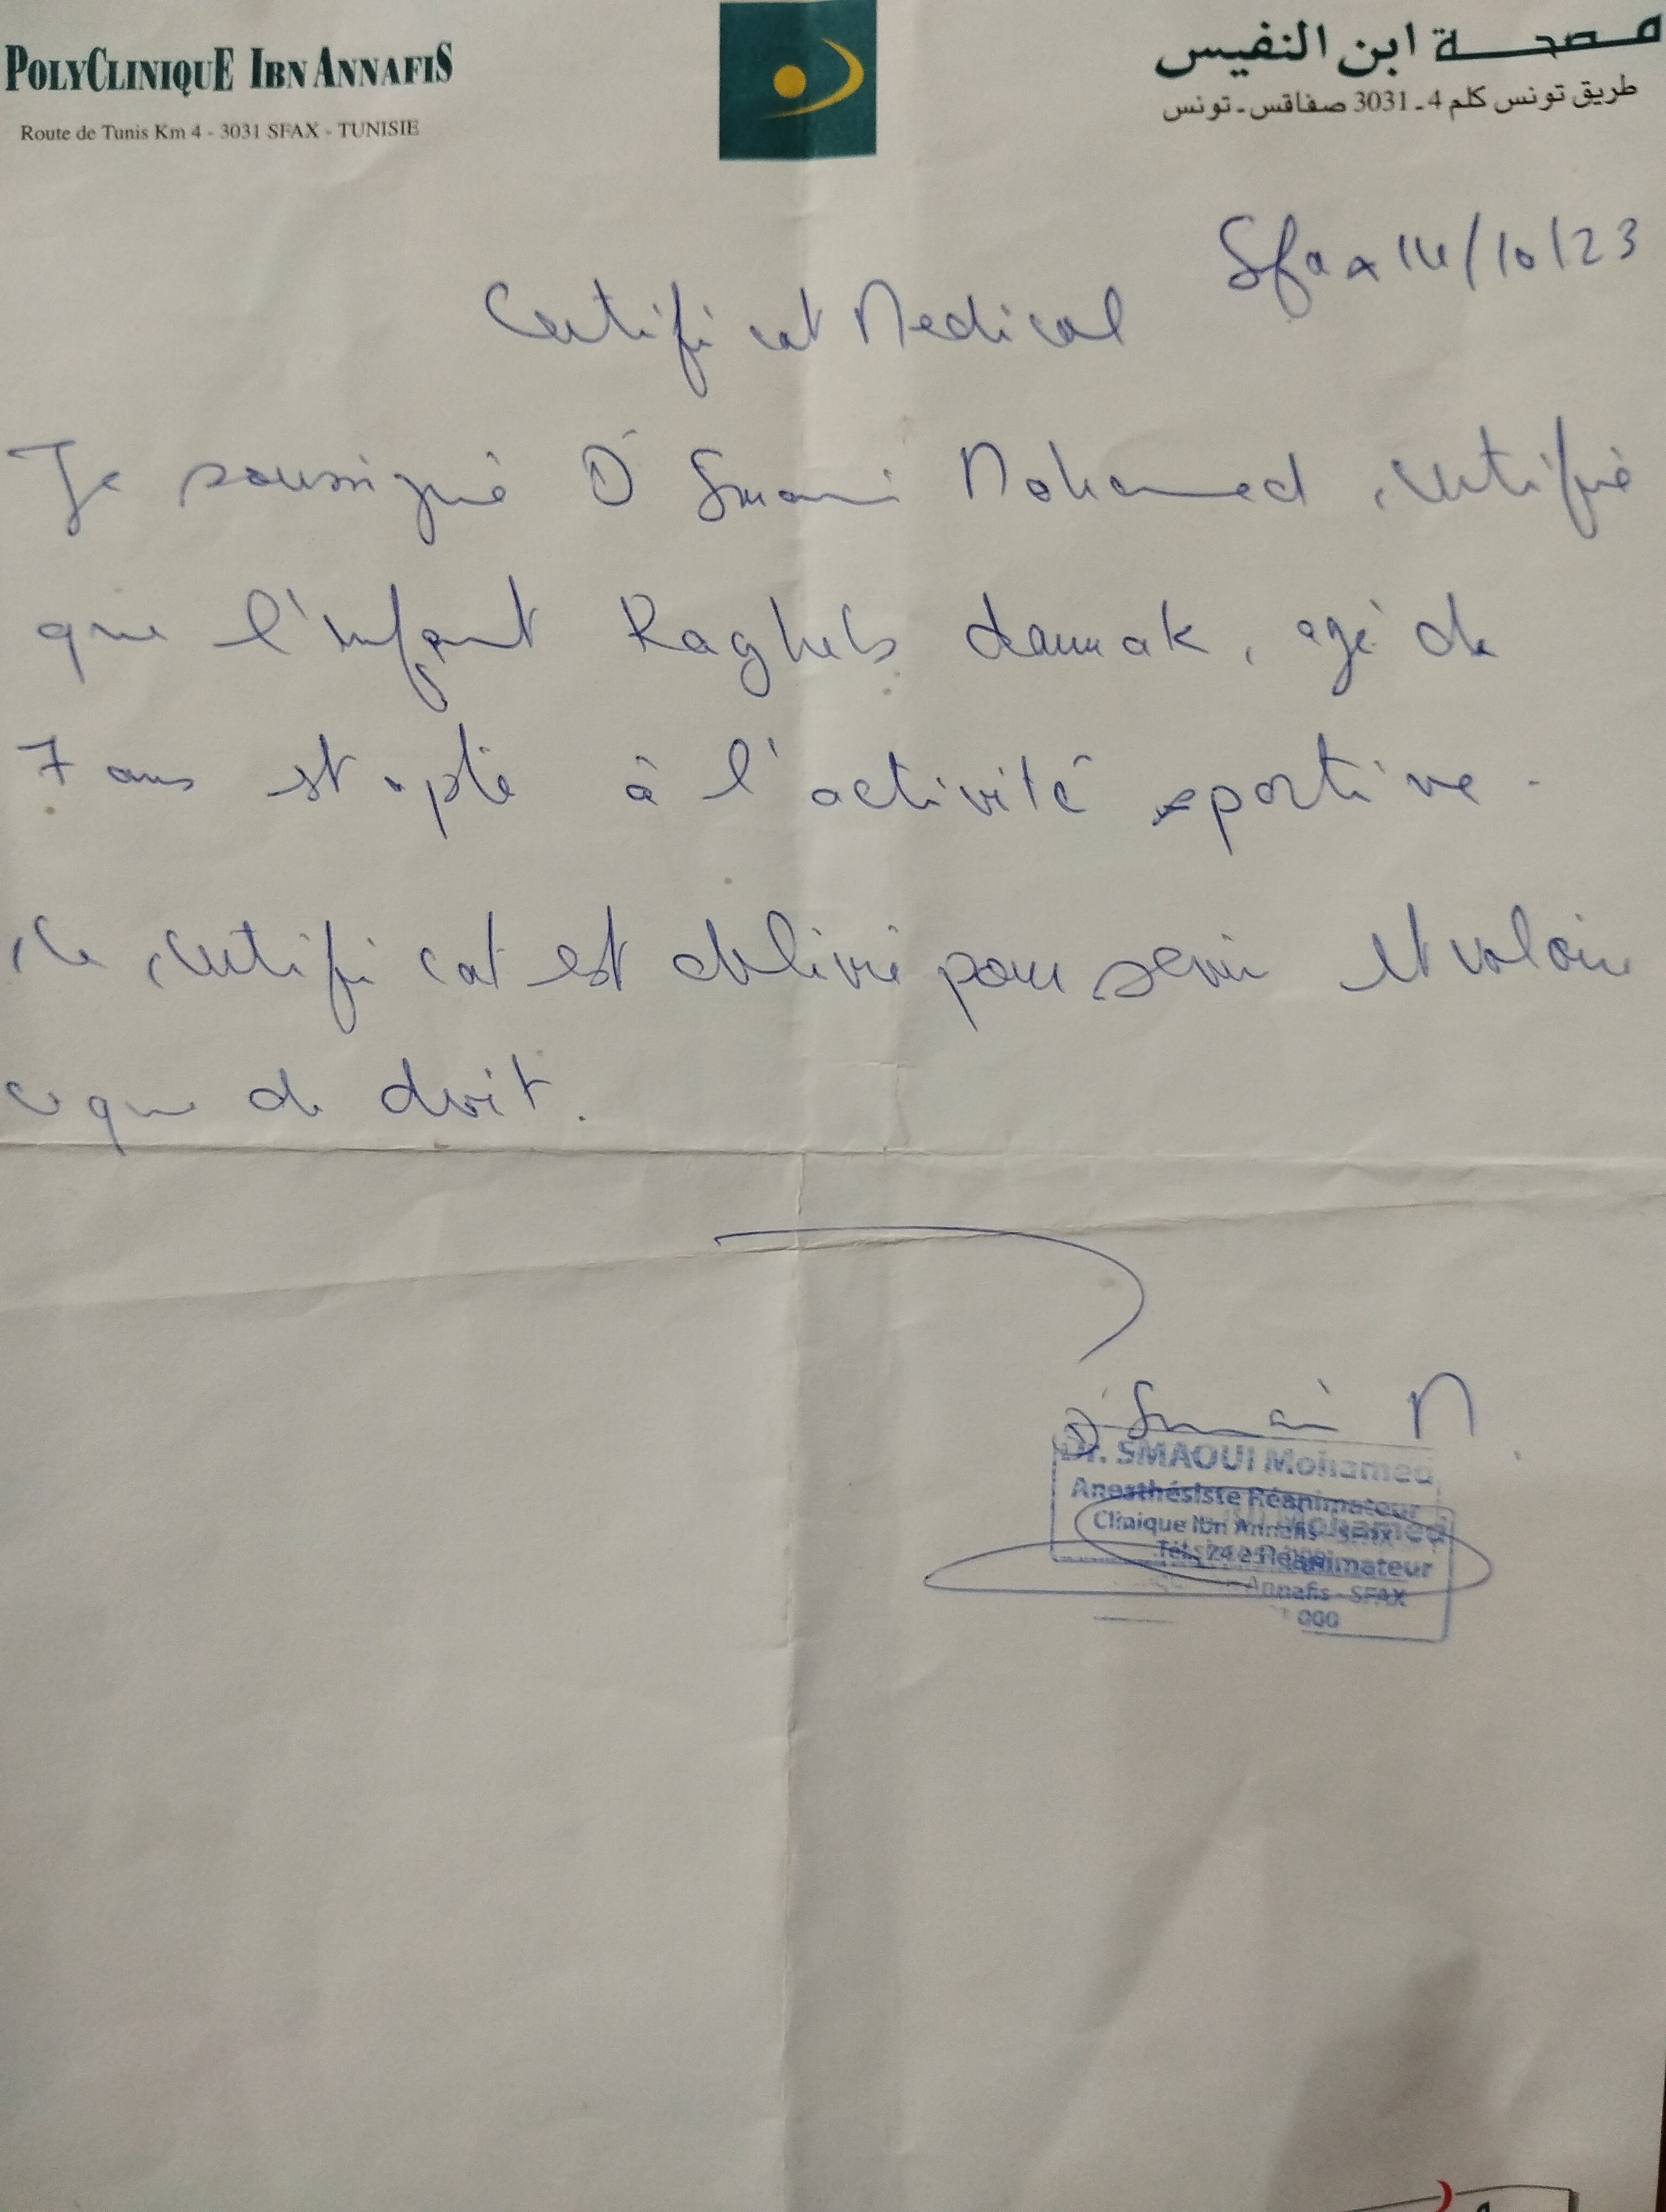 POLYCLINIQUE IBN ANNAFIS
Route de Tunis Km 4 - 3031 SFAX - TUNISIE
مصحة ابن النفيس
طريق تونس كلم 4 - 3031 صفاقس - تونس
Sfax 14/10/23
Certificat Medical
Je soussigné Dr Smaoui Mohamed, certifie
que l'enfant Ragheb damak, agé de
7 ans est apte à l'activité sportive.
Ce certificat est délivré pour servir et valoir
ce que de droit.
Dr Smaoui M
Dr. SMAOUI Mohamed
Anesthésiste Réanimateur
Clinique Ibn Annafis - SFAX
Tél.: 24 2
Mohamed
Réanimateur
Annafis - SFAX
000